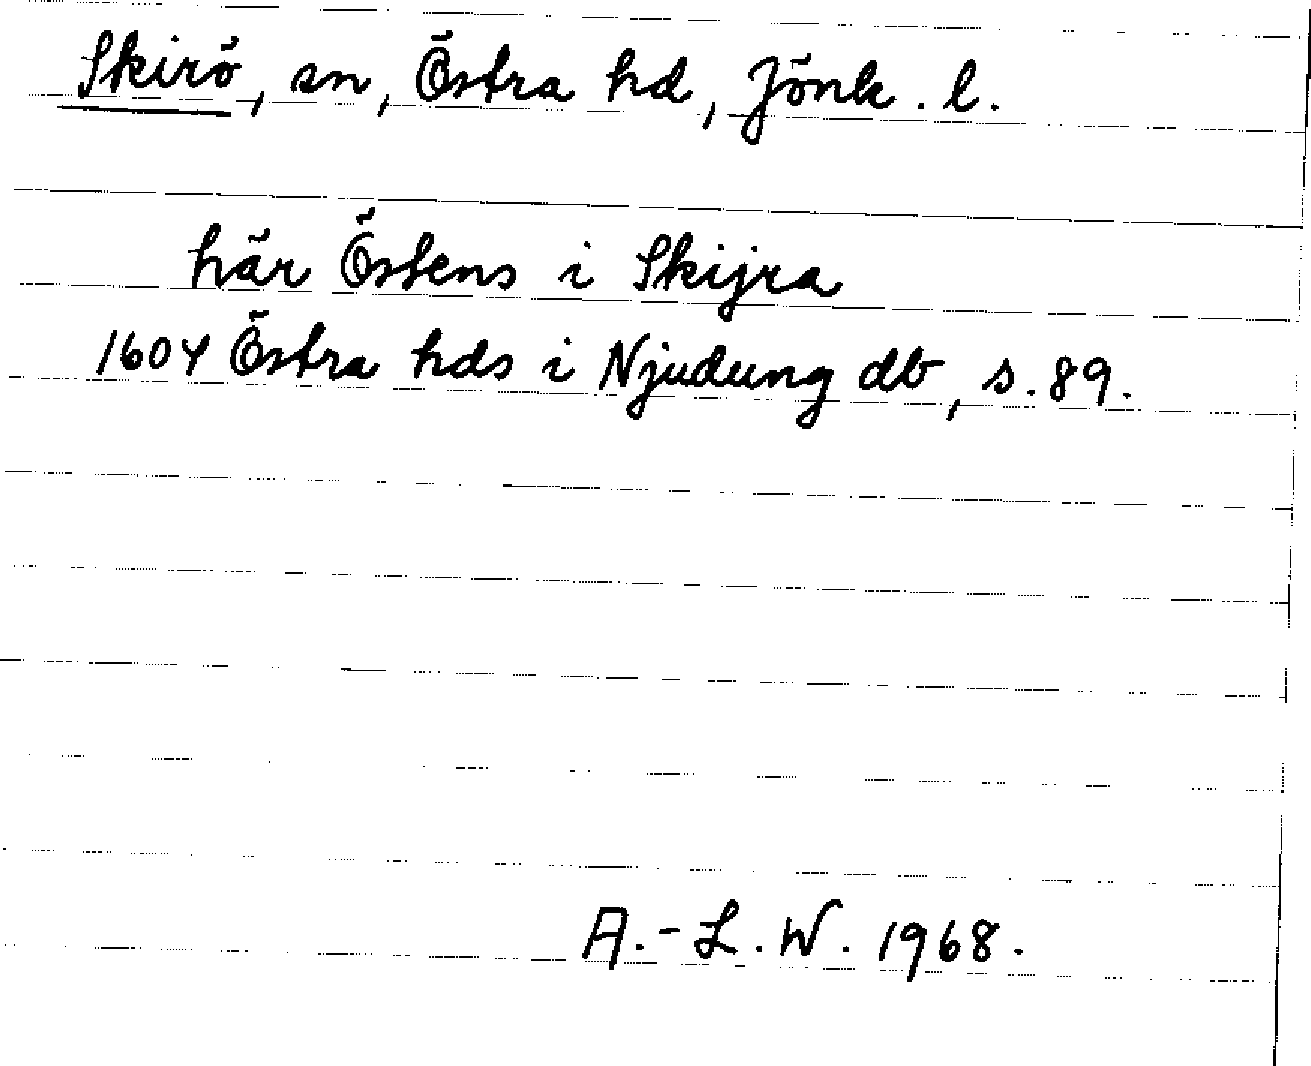 Skirö, sn, Östra hd, Jönk. l.
här Östens i Skijra
1604 Östra hds i Njudung db, s. 89.
A.-L.W. 1968.